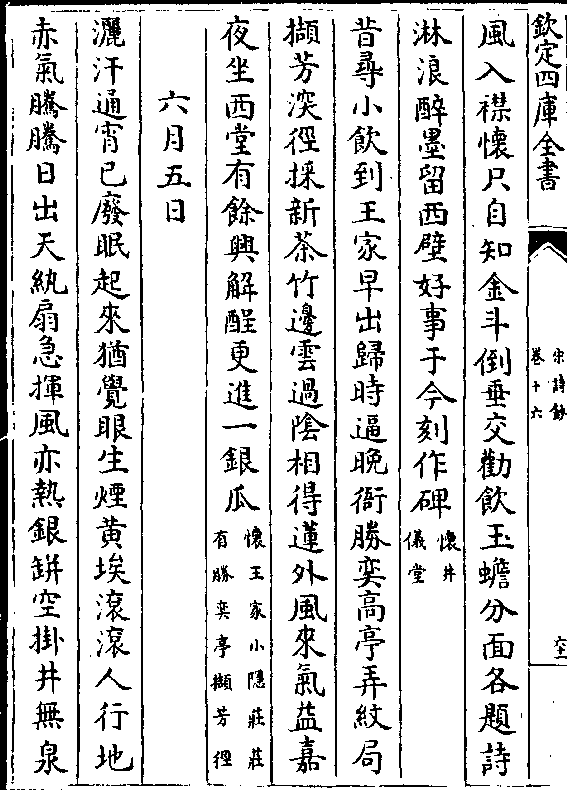 欽定四庫全書
宋詩鈔
卷十六
六十二
風入襟懷只自知金斗倒垂交勸飲玉蟾分面各題詩
淋浪醉墨留西壁好事于今刻作碑
懷井
儀堂
昔尋小飲到王家早出歸時逼晚衙勝奕高亭弄紋局
擷芳深徑採新茶竹邊雲過陰相得蓮外風來氣益嘉
夜坐西堂有餘興解酲更進一銀瓜
懷王家小隱莊莊
有勝奕亭擷芳徑
六月五日
灑汗通宵已廢眠起來猶覺眼生煙黃埃滾滾人行地
赤氣騰騰日出天紈扇急揮風亦熱銀缾空掛井無泉